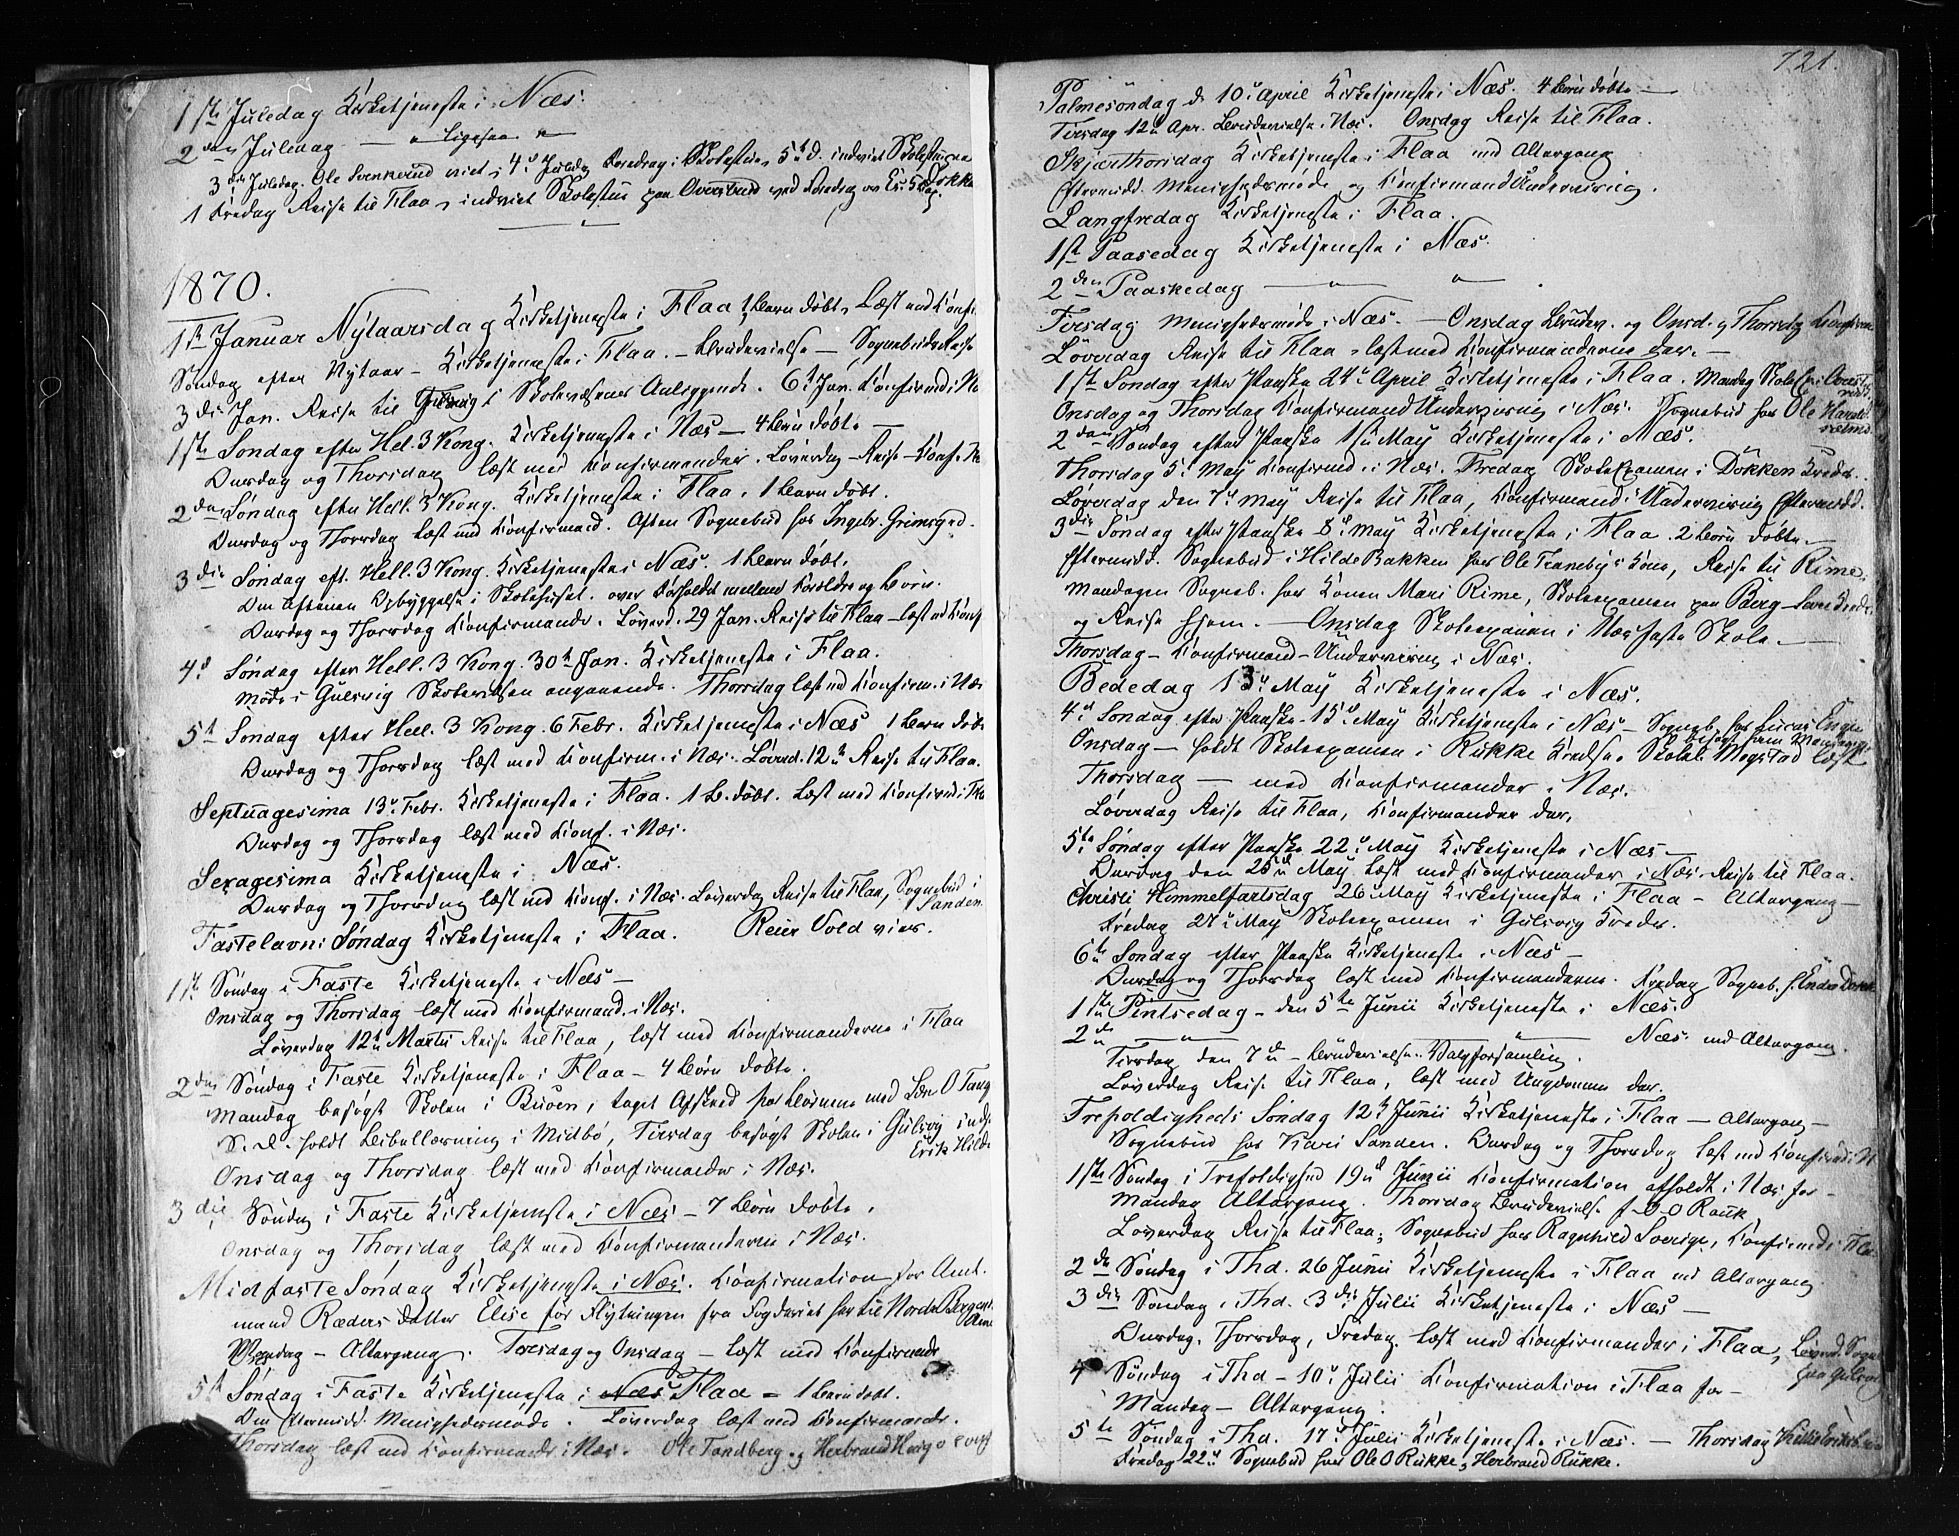 1ste Juledag Kirketjeneste i Næs.
2den Juledag — " ligesaa "
3die Juledag. Ole Svenkerud viet, 4de Juledag Foredrag i Skolestuen, 5te D. indviet Skolestuen
1 Fredag Reise til Flaa, indviet Skolestue paa Aavestrud ved Foredrag
1870.
1ste Januar Nytaarsdag Kirketjeneste i Flaa 1 Barn døbt, Læst med Konfi
Søndag efter Nytaar — Kirketjeneste i Flaa. — Brudevielse — Sognebuds Reise
3die Jan. Reise til Gulsvig i Skolevæsenets Anliggende. 6te Jan. Konfirmd i Næ
1ste Søndag efter Hel. 3 Kong. Kirketjeneste i Næs — 4 Børn døbte —
Onsdag og Thorsdag læst med Konfirmander. Løverdag — Reise — Konf.
2den Søndag efter Hell. 3 Kong. Kirketjeneste i Flaa. 1 Barn døbt.
Onsdag og Thorsdag læst med Konfirmand. Aften Sognebud hos Ingebr. Grimsgrd.
3die Søndag eft. Hell. 3 Kong. Kirketjeneste i Næs. 1 Barn døbt.
Om Aftenen Opbyggelse i Skolehuset. over Forholdet mellem Forældre og Børn.
Onsdag og Thorsdag Konfirmander. Løverd. 29 Jan. Reise til Flaa — læst m Konf
4d Søndag efter Hell. 3 Kong. 30te Jan. Kirketjeneste i Flaa.
Møde i Gulsvig Skolevæsen angaaende. Thorsdag læst m Konfirm. i Næs
5te Søndag efter Hell. 3 Kong. 6 Febr. Kirketjeneste i Næs 1 Barn døbt
Onsdag og Thorsdag læst med Konfirm. i Næs. Løverd. 12te Reise til Flaa.
Septuagesima 13de Febr. Kirketjeneste i Flaa. 1 B. døbt. Læst med Konfirmd i Fla
Onsdag og Thorsdag læst med Konf. i Næs.
Sexagesima Kirketjeneste i Næs.
Onsdag og Thorsdag læst med Konf. i Næs. Løverdag Reise til Flaa, Sognebud i Sanden
Fastelavns Søndag Kirketjeneste i Flaa. Reier Vold viet.
1ste Søndag i Faste Kirketjeneste i Næs —
Onsdag og Thorsdag læst med Konfirmand. i Næs.
Løverdag 12te Martii Reise til Flaa, læst med Konfirmanderne i Flaa
2den Søndag i Faste Kirketjeneste i Flaa — 4 Børn døbte.
Mandag besøgt Skolen i Buøen, taget Afsked hos Børnene med Lær. O Tang
S. D. holdt Bibellæsning i Midbø, Tirsdag besøgt Skolen i Gulsvig
Erik Hilde
Onsdag og Thorsdag læst med Konfirmander i Næs.
3die Søndag i Faste Kirketjeneste i Næs — 7 Børn døbte.
Onsdag og Thorsdag læst med Konfirmanderne i Næs.
Midfaste Søndag Kirketjeneste i Næs. Konfirmation for Amt.
mand Ræders Datter Elise før Flytningen fra Fogderiet her til Nordre Bergens Amt
Mandag — Altergang. Tirsdag og Onsdag — læst med Konfirmand
5te Søndag i Faste Kirketjeneste i Næs Flaa — 1 Barn døbt.
Om Eftermidd. Menighedsmøde. Løverdag læst med Konfirmander.
Thorsdag læst med Konfirmander i Næs. Ole Tandberg og Herbrand
721.
Palmesøndag d. 10de April Kirketjeneste i Næs. 4 Børn døbte —
Tirsdag 12te Apr. Brudevielse i Næs. Onsdag Reise til Flaa.
Skjærthorsdag Kirketjeneste i Flaa med Altergang
Eftermidd. Menighedsmøde og Konfirmand Undervisning.
Langfredag Kirketjeneste i Flaa.
1ste Paaskedag Kirketjeneste i Næs.
2den Paaskedag — " — " — .
Tirsdag Menighedsmøde i Næs. — Onsdag Brudev. og Onsd. og Thorsdag Konfirm
Løverdag Reise til Flaa, læst med Konfirmanderne der. —
1ste Søndag efter Paaske 24de April Kirketjeneste i Flaa. Mandag Skole i Aavestrud
Onsdag og Thorsdag Konfirmand Undervisning i Næs. Sognebud hos Ole
2den Søndag efter Paaske 1ste May Kirketjeneste i Næs.
Thorsdag 5te May Konfirmd. i Næs. Fredag Skoleexamen i Dokken Kreds.
Løverdag den 7de May Reise til Flaa, Konfirmand Undervisning Eftermidd.
3die Søndag efter Paaske 8de May Kirketjeneste i Flaa. 2 Børn døbte —
Eftermidd. Sognebud i Hilde Bakken hos Ole Tranebys Kone, Reise til Rime.
Mandagen Sogneb. hos Konen Mari Rime, Skoleexamen paa Berg
og Reise hjem. — Onsdag Skoleexamen i Næs faste Skole. —
Thorsdag — Konfirmand-Undervisning i Næs.
Bededag 13de May Kirketjeneste i Næs.
4de Søndag efter Paaske 15de May Kirketjeneste i Næs — Sogneb. hos Lucas Engen
Onsdag — holdt Skoleexamen i Rukke Kreds. Skolel. Mogstad læst
Thorsdag — med Konfirmander i Næs.
Løverdag Reise til Flaa, Konfirmander der.
5te Søndag efter Paaske 22de May Kirketjeneste i Næs —
Onsdag den 25de May Læst med Konfirmander i Næs. Reise til Flaa.
Christi Himmelfartsdag 26de May Kirketjeneste i Flaa — Altergang —
Fredag 27de May Skoleexamen i Gulsvig Kreds.
6te Søndag efter Paaske Kirketjeneste i Næs —
Onsdag og Thorsdag læst med Konfirmanderne. Fredag Sogneb. h. Endre Dokk
1ste Pintsedag — den 5te Junii Kirketjeneste i Næs.
2den — " — " — Næs med Altergang.
Tirsdag den 7de — Brudevielse. Valgforsamling.
Løverdag Reise til Flaa, læst med Ungdommen der.
Trefoldigheds Søndag 12te Junii Kirketjeneste i Flaa — Altergang —
Sognebud hos Kari Sanden. Onsdag og Thorsdag læst med Konfirmd i N
1ste Søndag i Trefoldighed 19de Junii Konfirmation afholdt i Næs for —
Mandag Altergang. Thorsdag Brudevielse f. O O Rauk
Løverdag Reise til Flaa, Sognebud hos Ragnhild Sverige, Konfirmd i Fla
2den Søndag i Thd. 26 Junii Kirketjeneste i Flaa med Altergang
3die Søndag i Thd. 3die Julii Kirketjeneste i Næs —
Onsdag, Thorsdag, Fredag læst med Konfirmander i Flaa, Løverd. Sogn
paa Gulsvig
4 Søndag i Thd — 10de Julii Konfirmation i Flaa for —
Mandag — Altergang.
5te Søndag i Thd. 17de Julii Kirketjeneste i Næs. — Thorsdag
Fredag 22de Sognebud hos Ole O Rukke, Herbrand Rukke.